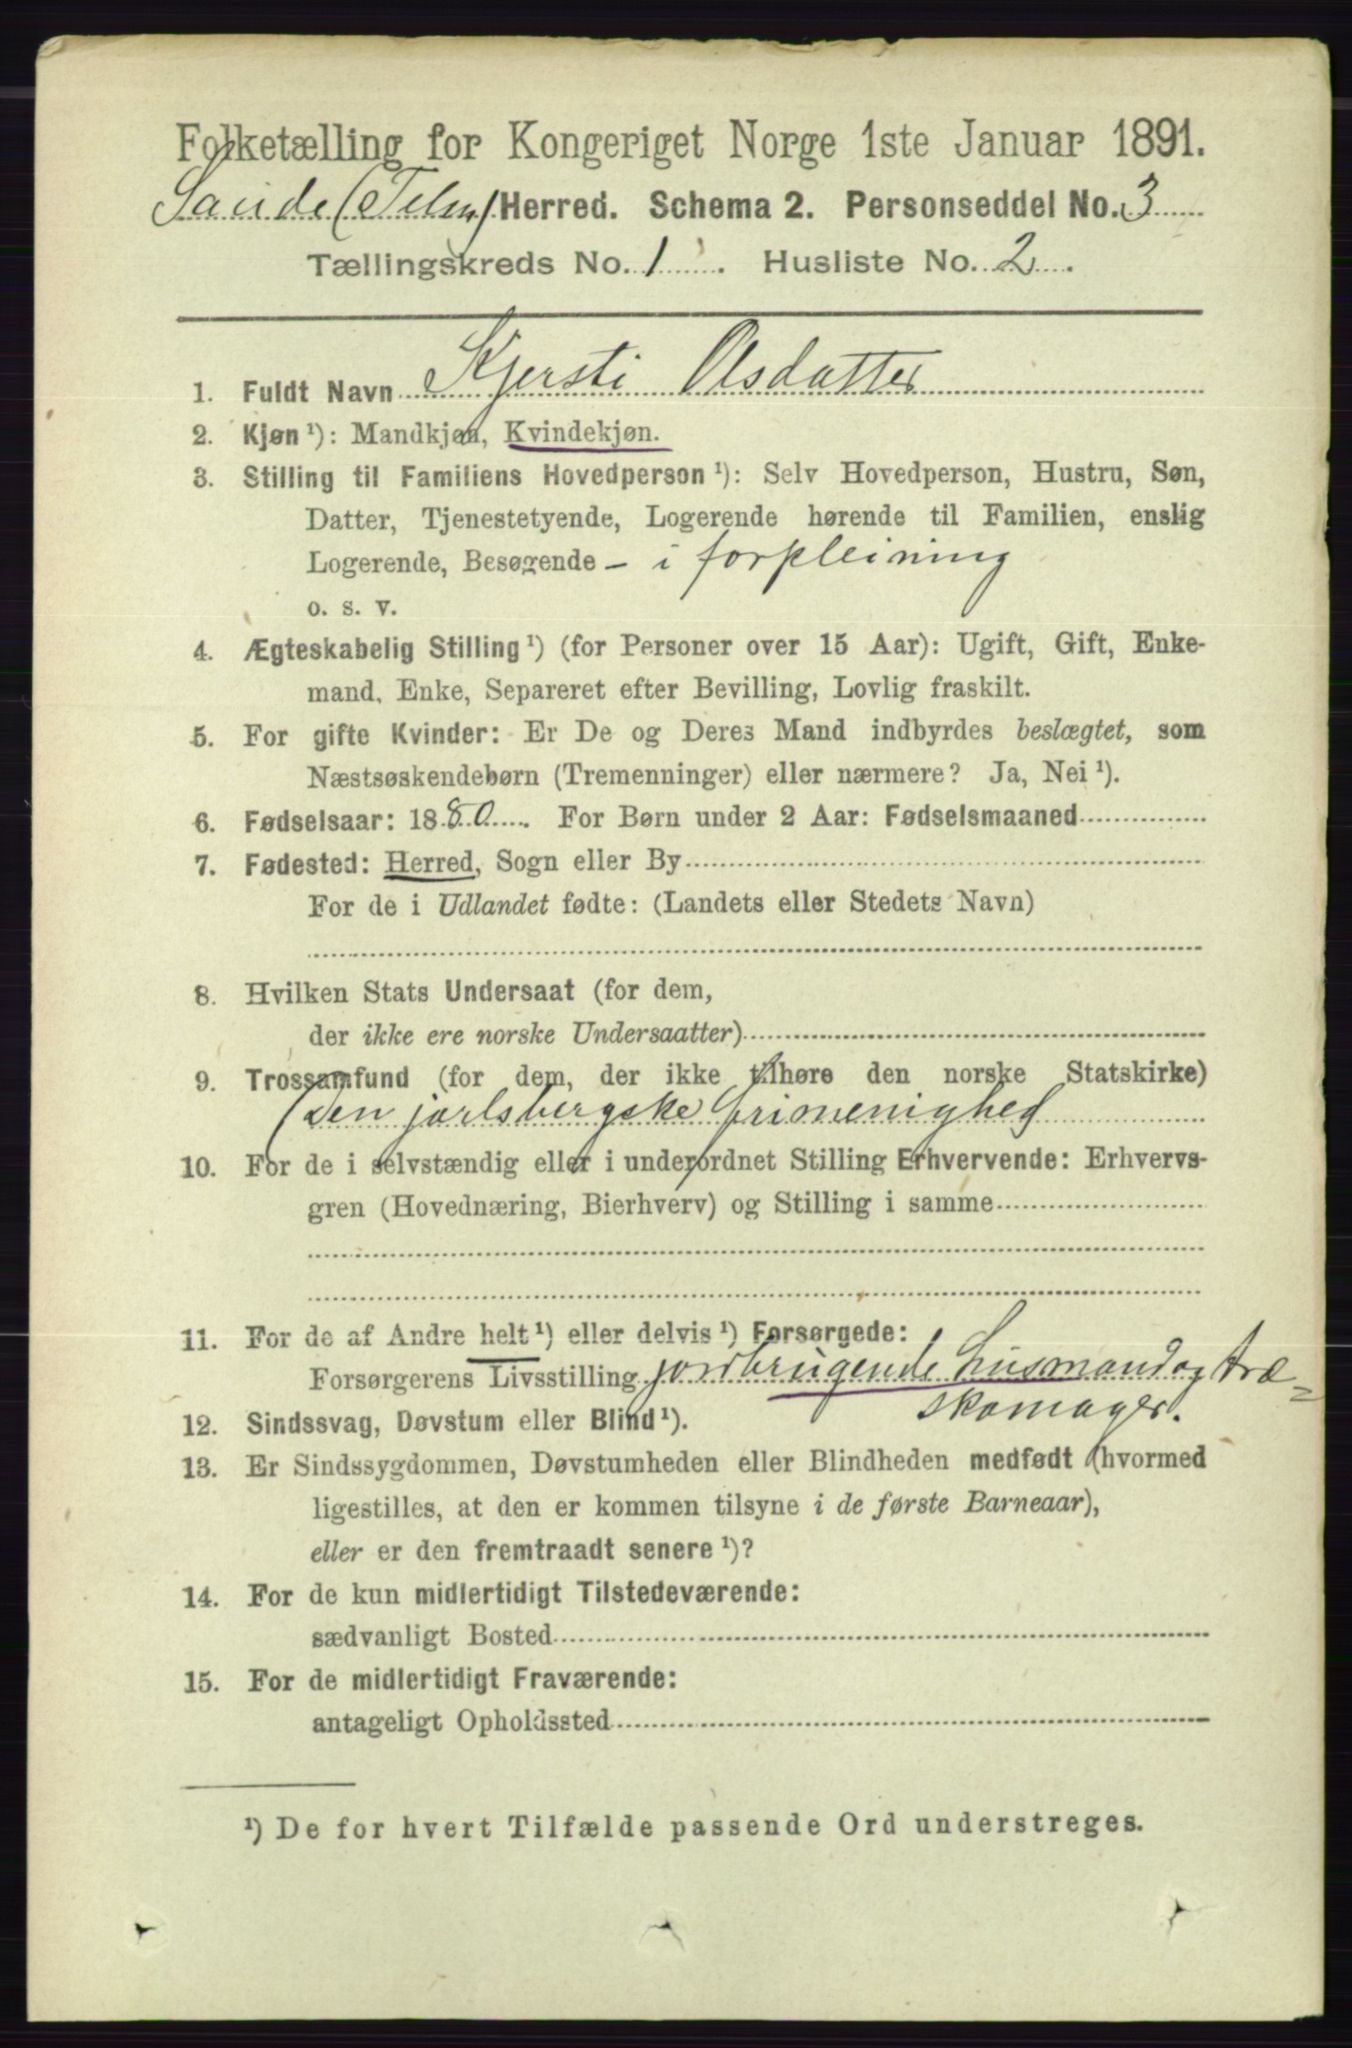 Folketælling for Kongeriget Norge 1ste Januar 1891.
Saude (Telm) Herred. Schema 2. Personseddel No. 3
Tællingskreds No. 1. Husliste No. 2.
1. Fuldt Navn Kjersti Olsdatter
2. Kjøn ¹): Mandkjøn, Kvindekjøn.
3. Stilling til Familiens Hovedperson ¹): Selv Hovedperson, Hustru, Søn,
Datter, Tjenestetyende, Logerende hørende til Familien, enslig
Logerende, Besøgende – i forpleining
o. s. v.
4. Ægteskabelig Stilling ¹) (for Personer over 15 Aar): Ugift, Gift, Enke-
mand, Enke, Separeret efter Bevilling, Lovlig fraskilt.
5. For gifte Kvinder: Er De og Deres Mand indbyrdes beslægtet, som
Næstsøskendebørn (Tremenninger) eller nærmere? Ja, Nei ¹).
6. Fødselsaar: 1880. For Børn under 2 Aar: Fødselsmaaned
7. Fødested: Herred, Sogn eller By
For de i Udlandet fødte: (Landets eller Stedets Navn)
8. Hvilken Stats Undersaat (for dem,
der ikke ere norske Undersaatter)
9. Trossamfund (for dem, der ikke tilhøre den norske Statskirke)
(Den jarlsbergske frimenighed
10. For de i selvstændig eller i underordnet Stilling Erhvervende: Erhvervs-
gren (Hovednæring, Bierhverv) og Stilling i samme
11. For de af Andre helt ¹) eller delvis ¹) Forsørgede:
Forsørgerens Livsstilling jordbrugende husmand og træ=
skomager.
12. Sindssvag, Døvstum eller Blind ¹).
13. Er Sindssygdommen, Døvstumheden eller Blindheden medfødt (hvormed
ligestilles, at den er kommen tilsyne i de første Barneaar),
eller er den fremtraadt senere ¹)?
14. For de kun midlertidigt Tilstedeværende:
sædvanligt Bosted
15. For de midlertidigt Fraværende:
antageligt Opholdssted
¹) De for hvert Tilfælde passende Ord understreges.